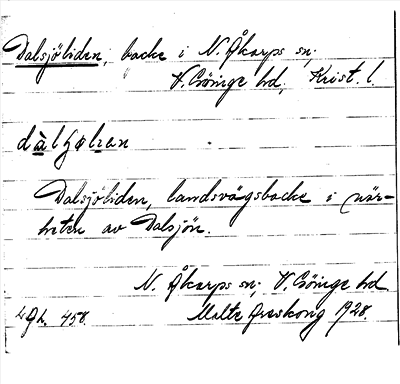 Dalsjöliden, backe i N. Åkarps sn;
V. Göinge hd, Krist. l.
Dalsjöliden, landsvägsbacke i när-
heten av Dalsjön.
N. Åkarps sn; V. Göinge hd
458. Malte Areskoug 1928.